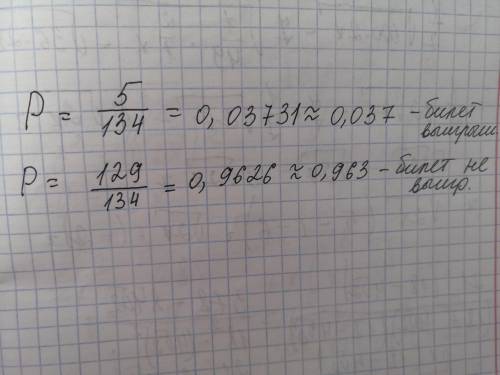 P = 5/134 = 0,03731 ≈ 0,037 - билет
выиграш
P = 129/134 = 0,9626 ≈ 0,963 - билет не
выигр.